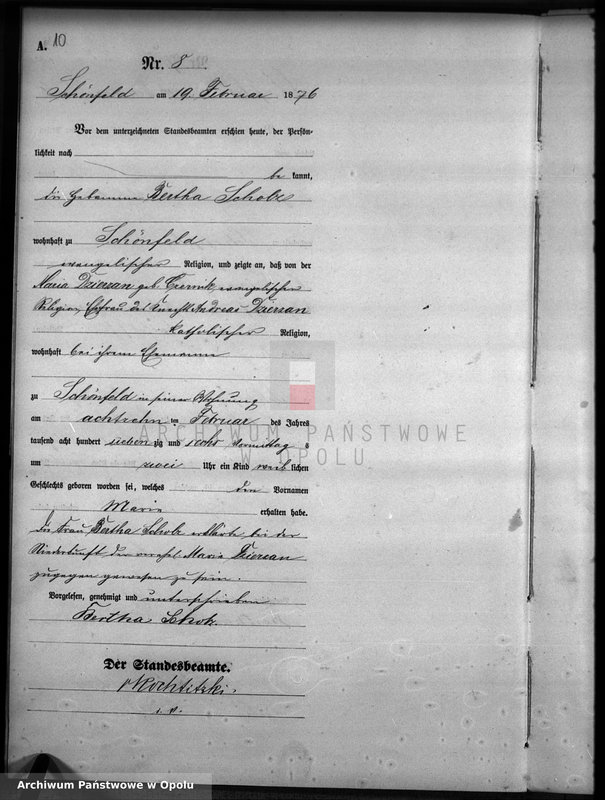 A. 10
Nr. 8
Schönfeld am 19. Februar 1876
Vor dem unterzeichneten Standesbeamten erschien heute, der Persön-
lichkeit nach
be kannt,
die Hebamme Bertha Scholz
wohnhaft zu Schönfeld
evangelischer Religion, und zeigte an, daß von der
Maria Dziersan geb. evangelischer
Religion, Ehefrau des Knecht Andreas Dziersan
katholischer Religion,
wohnhaft bei ihrem Ehemanne
zu Schönfeld in seiner Wohnung
am achtzehn ten Februar des Jahres
tausend acht hundert sieben zig und sechs Vormittag s
um zwei Uhr ein Kind weib lichen
Geschlechts geboren worden sei, welches den Vornamen
Marie erhalten habe.
Die Frau Bertha Scholz erklärte bei der
Niederkunft der Maria Dziersan
zugegen gewesen zu sein.
Vorgelesen, genehmigt und unterschrieben
Bertha Scholz.
Der Standesbeamte.
v Kochtitzki.
i. v.
ARCHIWUM PAŃSTWOWE
W OPOLU
Archiwum Państwowe w Opolu